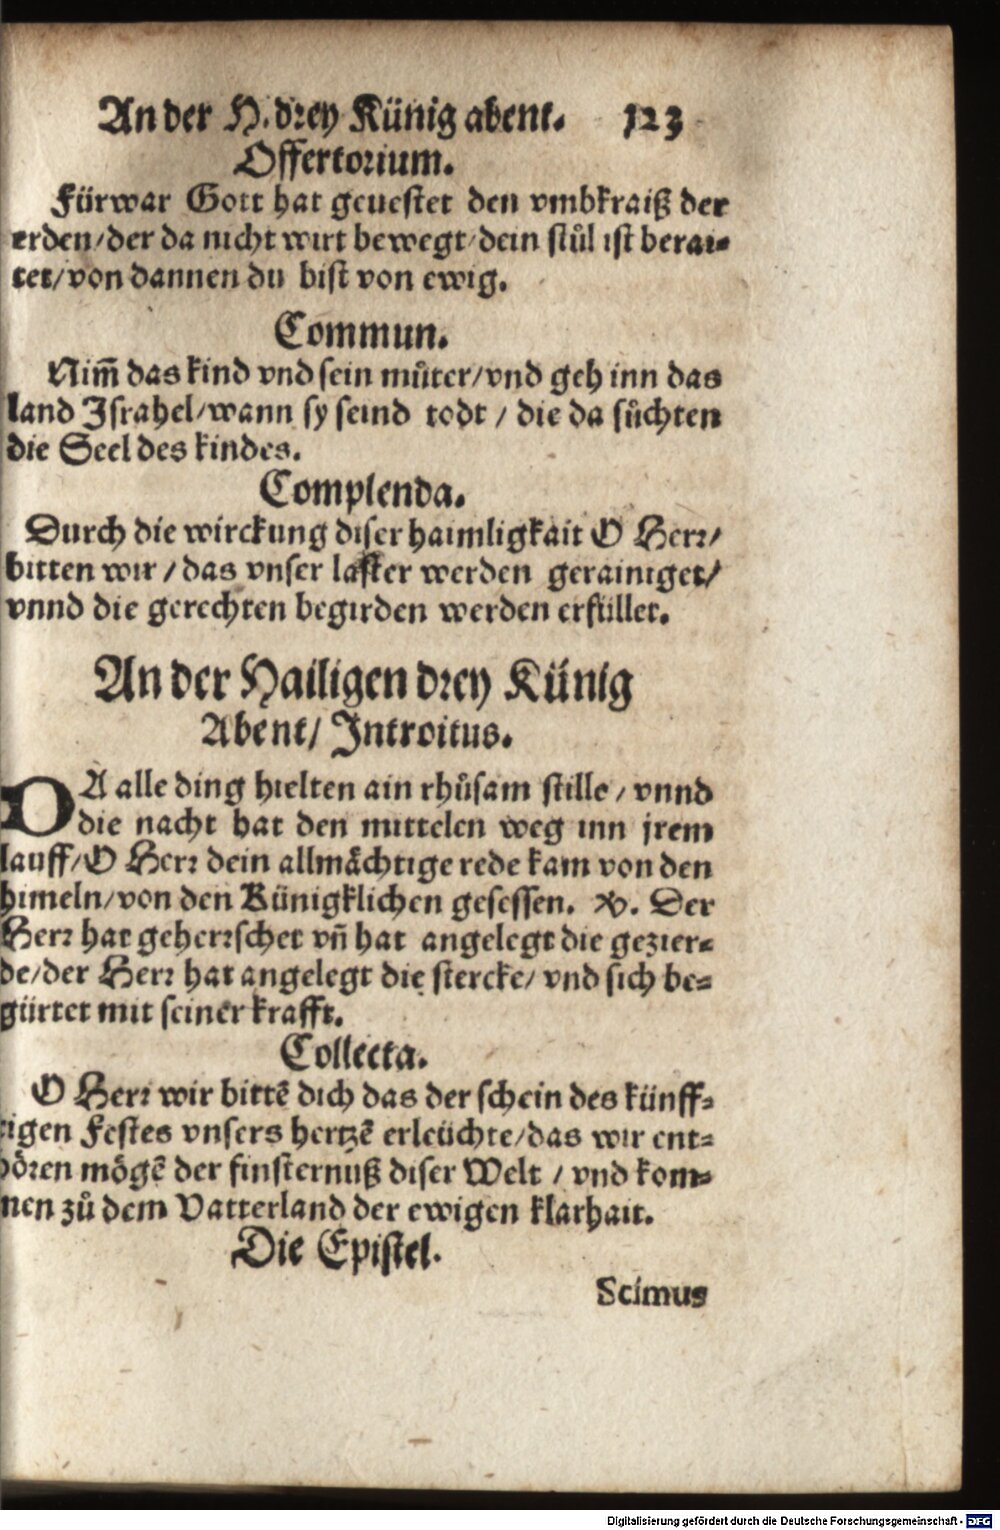 An der H. drey Künig abent. 123
Offertorium.
Fürwar Gott hat geuestet den vmbkraiß der
erden/der da nicht wirt bewegt/dein stůl ist berai-
tet/von dannen du bist von ewig.
Commun.
Nim̃ das kind vnd sein můter/vnd geh inn das
land Israhel/wann sy seind todt / die da sůchten
die Seel des kindes.
Complenda.
Durch die wirckung diser haimligkait O Herr/
bitten wir / das vnser laster werden gerainiget/
vnnd die gerechten begirden werden erfüllet.
An der Hailigen drey Künig
Abent/ Introitus.
DA alle ding hielten ain rhůsam stille / vnnd
die nacht hat den mittelen weg inn jrem
lauff/O Herr dein allmächtige rede kam von den
himeln/von den Künigklichen gesessen. V. Der
Herr hat geherrschet vñ hat angelegt die gezier-
de/der Herr hat angelegt die stercke/ vnd sich be-
gürtet mit seiner krafft.
Collecta.
O Herr wir bittẽ dich das der schein des künff-
tigen Festes vnsers hertzẽ erleüchte/das wir ent-
bören mögẽ der finsternuß diser Welt / vnd kom-
men zů dem Vatterland der ewigen klarhait.
Die Epistel.
Scimus
Digitalisierung gefördert durch die Deutsche Forschungsgemeinschaft - DFG